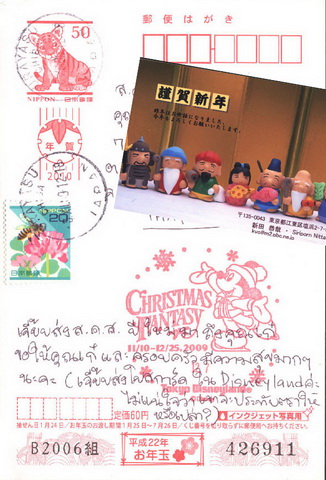 50
NIPPON 日本郵便
年賀
2010
20
日本郵便
郵便はがき
謹賀新年
昨年はお世話になりました。
今年もよろしくお願いいたします。
〒135-0043 東京都江東区塩浜2-7-
新田 恭哉 - Siriporn Nitta
CHRISTMAS
FANTASY
11/10-12/25/2009
Tokyo Disneyland
เจี๊ยบส่ง ส.ค.ส. ปีใหม่มาถึงคุณเก๋
ขอให้คุณเก๋ และครอบครัวมีความสุขมากๆ
นะคะ (เจี๊ยบส่งโปสการ์ดใน Disneyland ค่ะ
ไม่แน่ใจว่าเขาจะประทับตราให้
หรือเปล่า?)
定価60円
インクジェット写真用
抽せん日1月24日/お年玉のお渡し期間1月25日~7月26日/くじ番号を切り取らずにお郵便局へお持ちください。
B2006組
平成22年
お年玉
426911